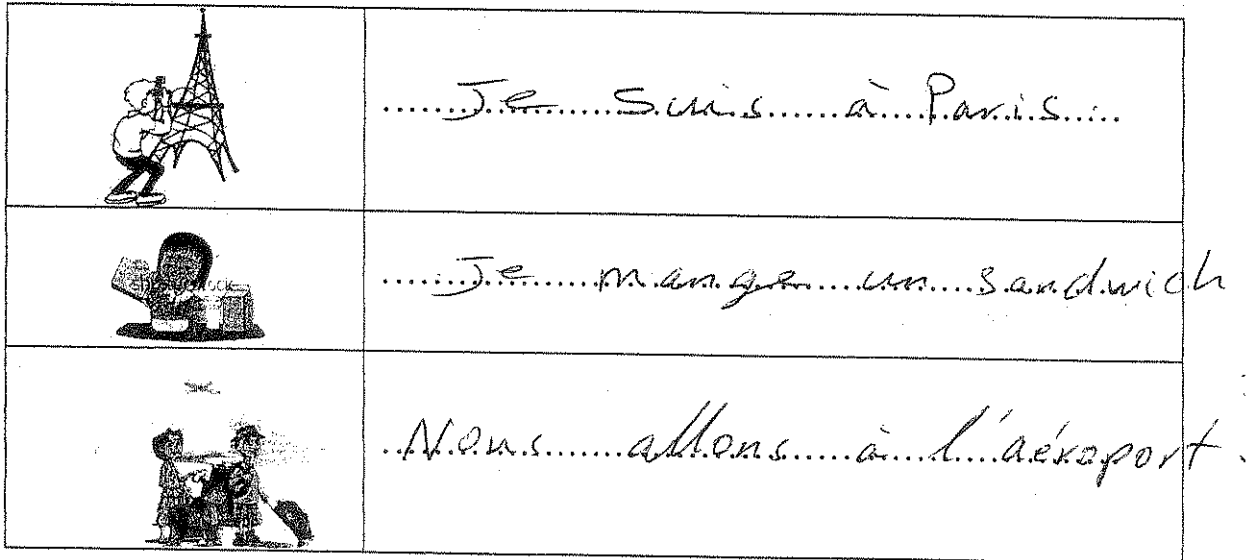 Je suis à Paris.
Je mange un sandwich
Nous allons à l'aéroport.